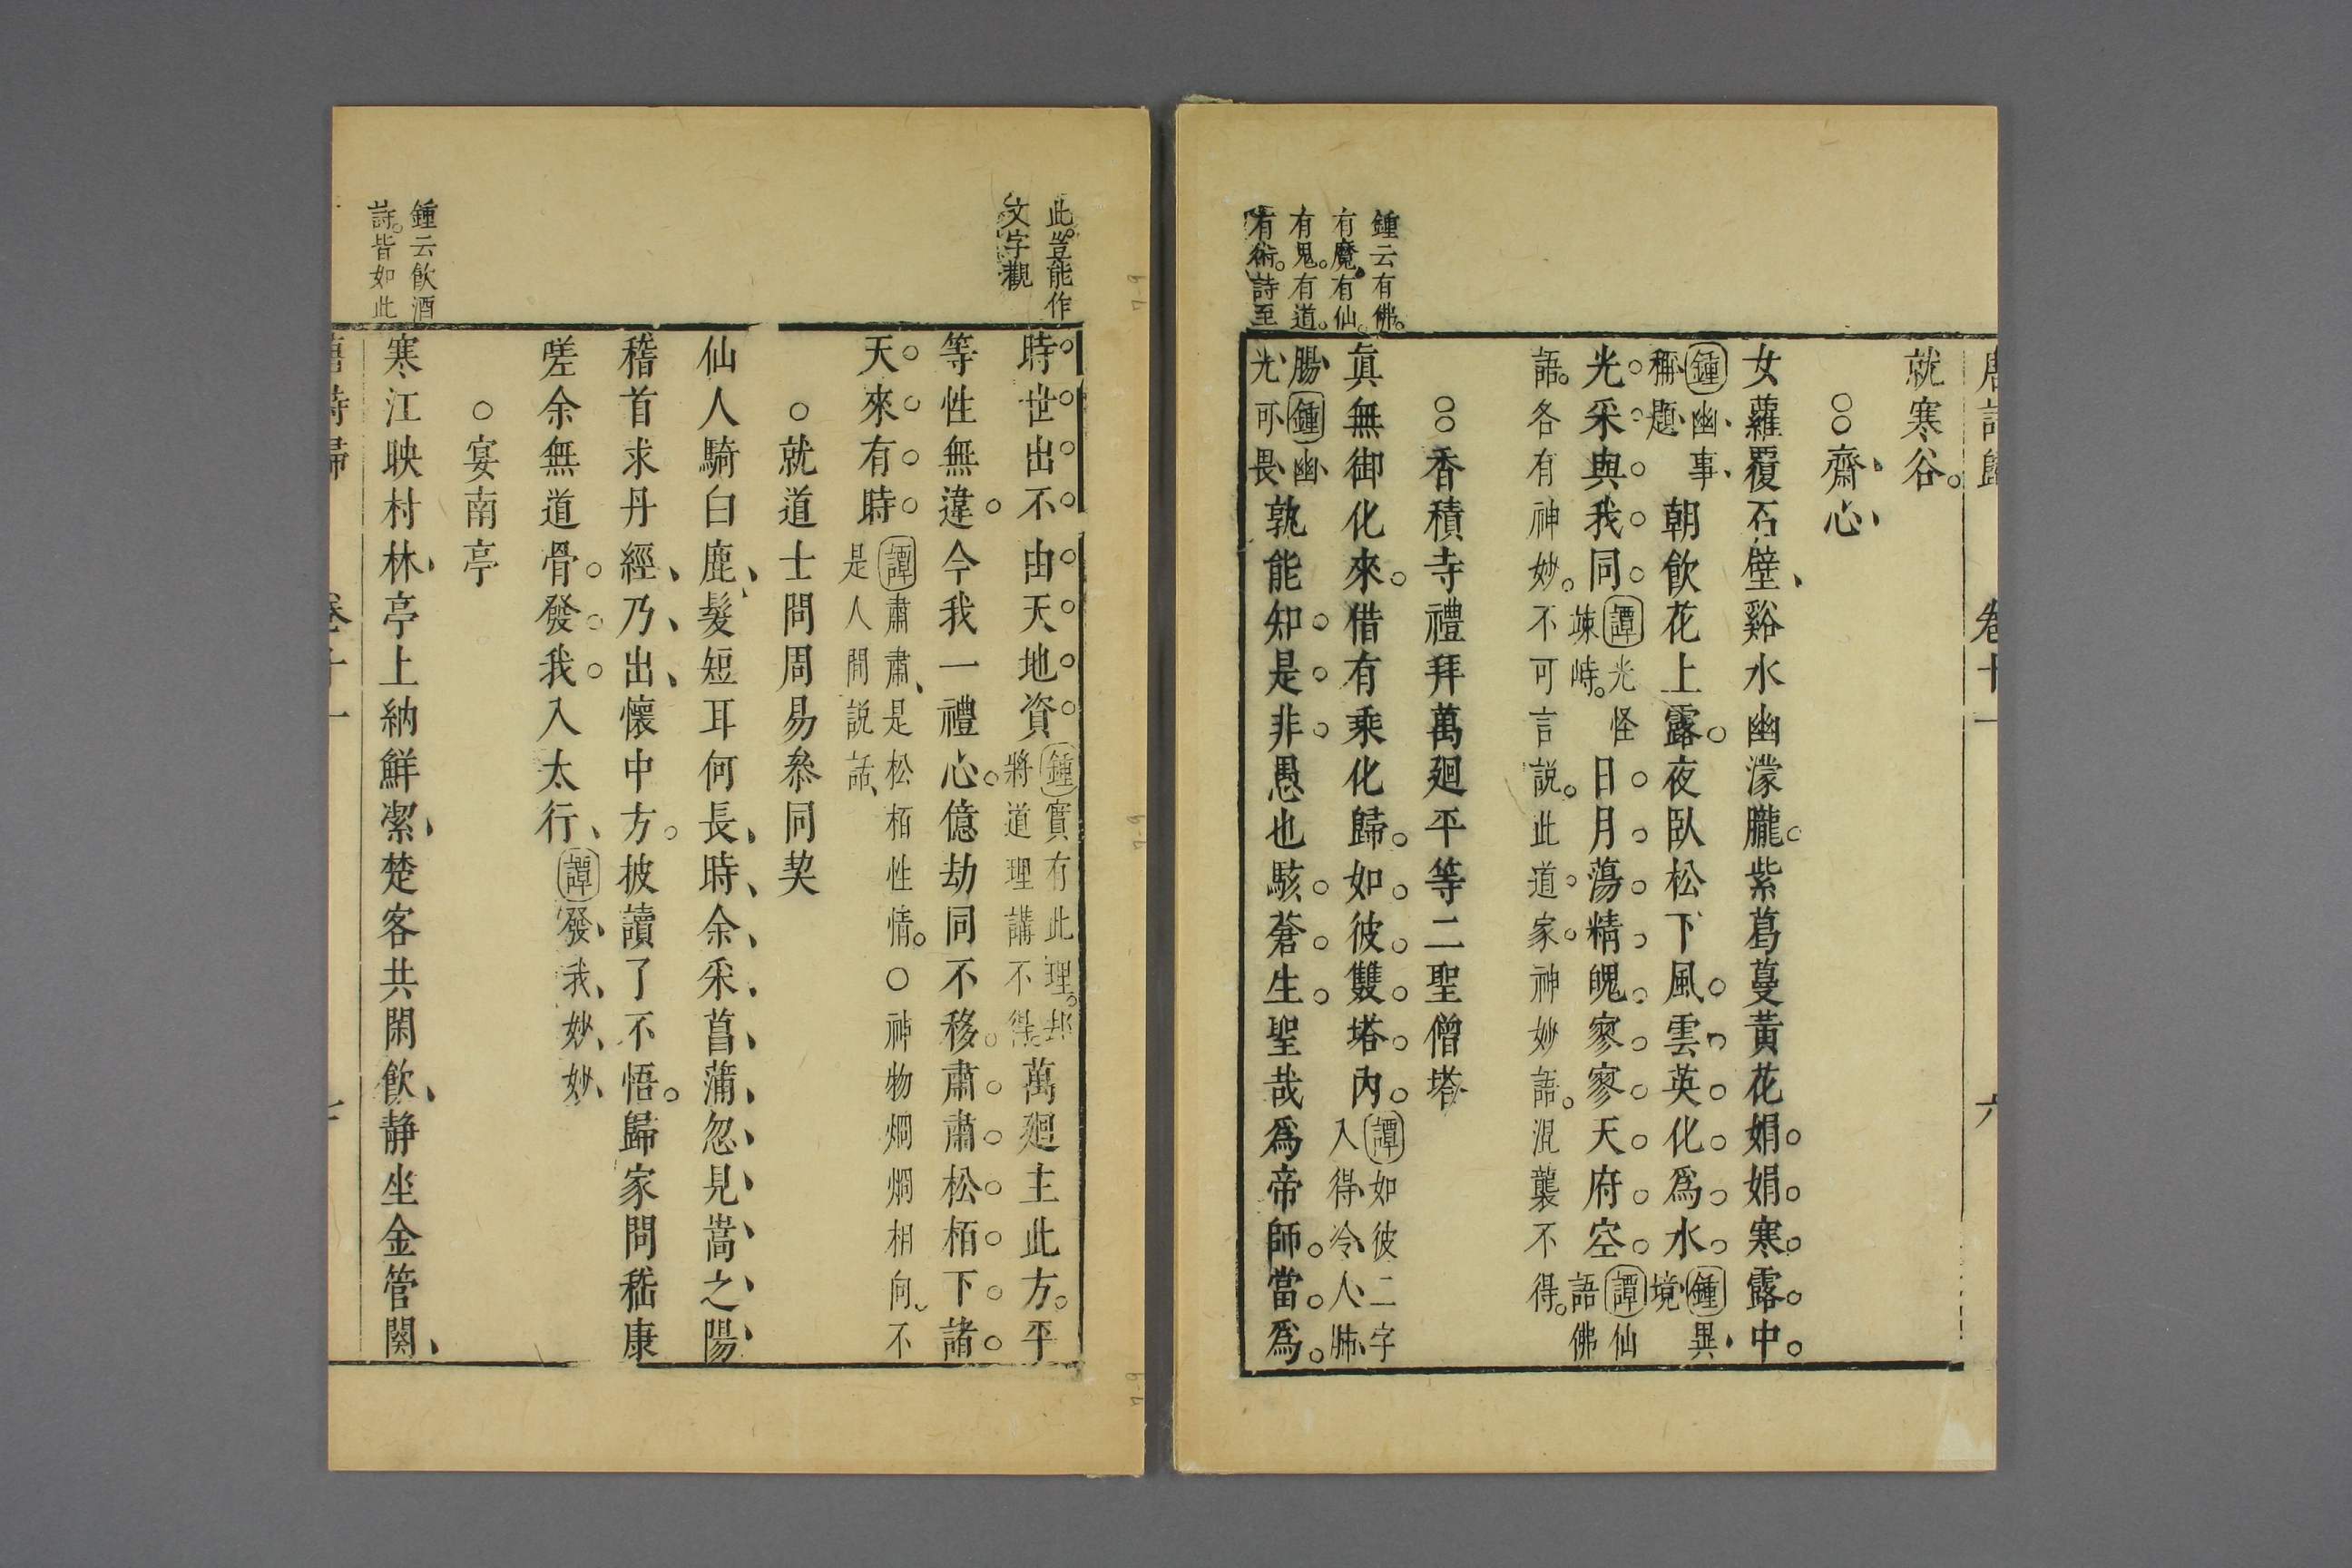 唐詩歸　卷十一　六
就寒谷。
○○齋心
女蘿覆石壁、谿水幽濛朧。紫葛蔓黃花娟娟寒露中。
鍾幽事稱題朝飲花上露。夜臥松下風雲英化爲水鍾異境
光采與我同譚光怪竦峙。日月蕩精魄寥寥天府空譚仙語佛
語。各有神妙。不可言說。此道家神妙語。混襲不得。
○○香積寺禮拜萬廻平等二聖僧塔
眞無御化來。借有乘化歸。如彼雙塔內。譚如彼二字入得冷人肺
腸鍾幽光可畏孰能知是非愚也駭蒼生聖哉爲帝師。當爲
鍾云有佛。
有魔有仙。
有鬼。有道。
有術。詩至
此。豈能作
文字觀
時世出不由天地資鍾實有此理。却將道理講不得。萬廻主此方。平
等性無違。今我一禮心。億劫同不移。肅肅松栢下諸
天來有時譚肅肅、是松栢性情。○神物烱烱相向、不是人間說話、
○就道士問周易參同契
仙人騎白鹿、髮短耳何長、時余采菖蒲、忽見嵩之陽
稽首求丹經、乃出懷中方。披讀了不悟。歸家問嵇康
嗟余無道骨。發我入太行、譚發我妙妙
○宴南亭
寒江映村林、亭上納鮮潔、楚客共閑飲、静坐金管闋、
鍾云飲酒
詩。皆如此